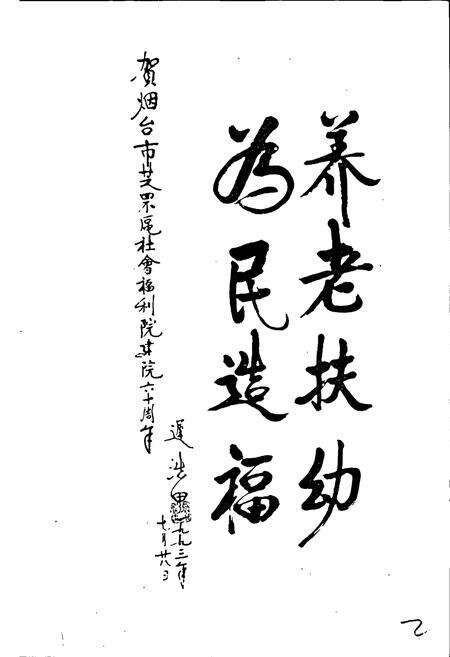 养老扶幼
為民造福
贺烟台市芝罘區社會福利院建院六十周年
遲浩田
一九九三年
七月廿八日